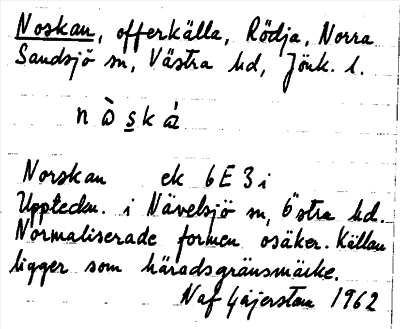 Noskan, offerkälla, Rödja, Norra
Sandsjö sn, Västra hd, Jönk. l.
n ò s k á
Norskan ek 6E3i
Uppteckn. i Nävelsjö sn, Östra hd.
Normaliserade formen osäker. Källan
ligger som häradsgränsmärke.
Naf 1962